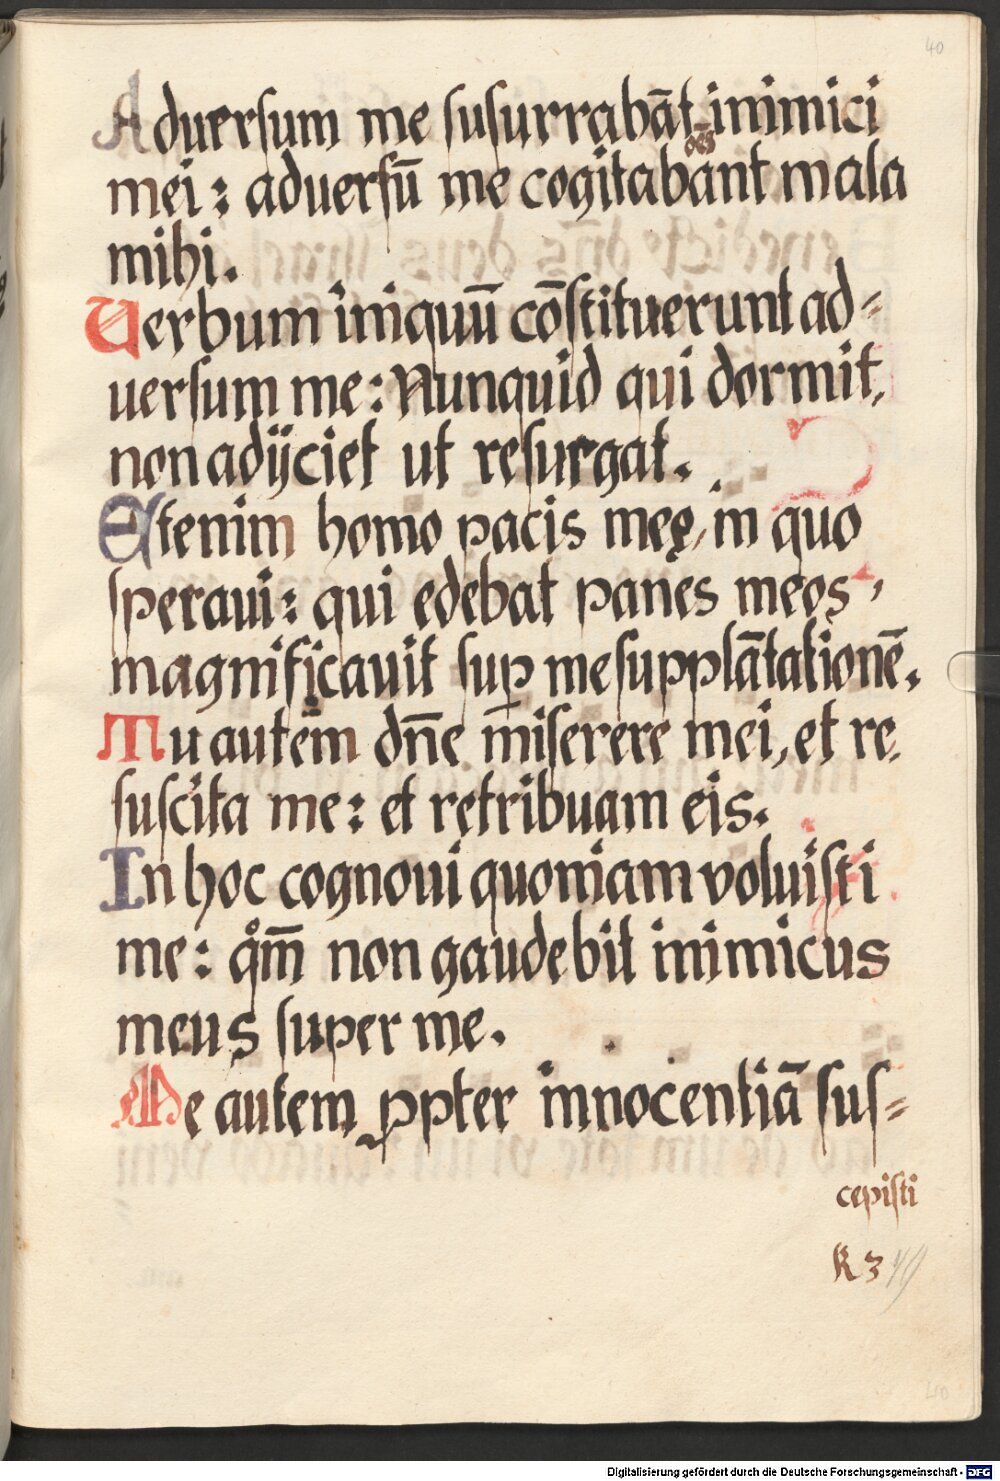 40
Aduersum me susurrabāt inimici
oēs
mei: aduersū me cogitabant mala
mihi.
Uerbum iniquū cōstituerunt ad-
uersum me: Nunquid qui dormit,
non adijciet ut resurgat.
Etenim homo pacis meę, in quo
speraui: qui edebat panes meos,
magnificauit sup me supplātationē.
Tu autem dn̄e m̄iserere mei, et re-
suscita me: et retribuam eis.
In hoc cognoui quoniam voluisti
me: qm̄ non gaudebit inimicus
meus super me.
Me autem ꝓpter innocentiā sus-
cepisti
K 3
40
Digitalisierung gefördert durch die Deutsche Forschungsgemeinschaft - DFG